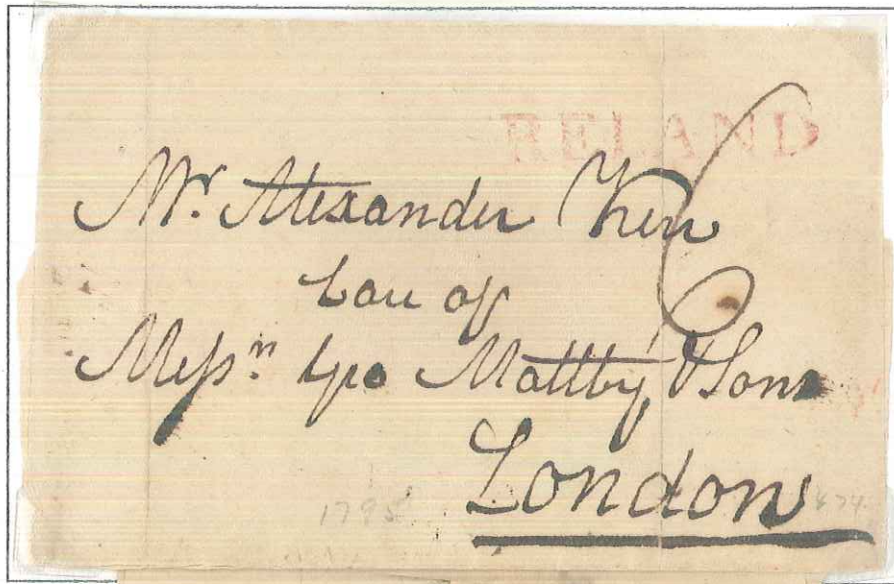 RELAND
6
Mr. Alexander Kerr
Care of
Messrs. Geo Maltby & Sons
London
1795